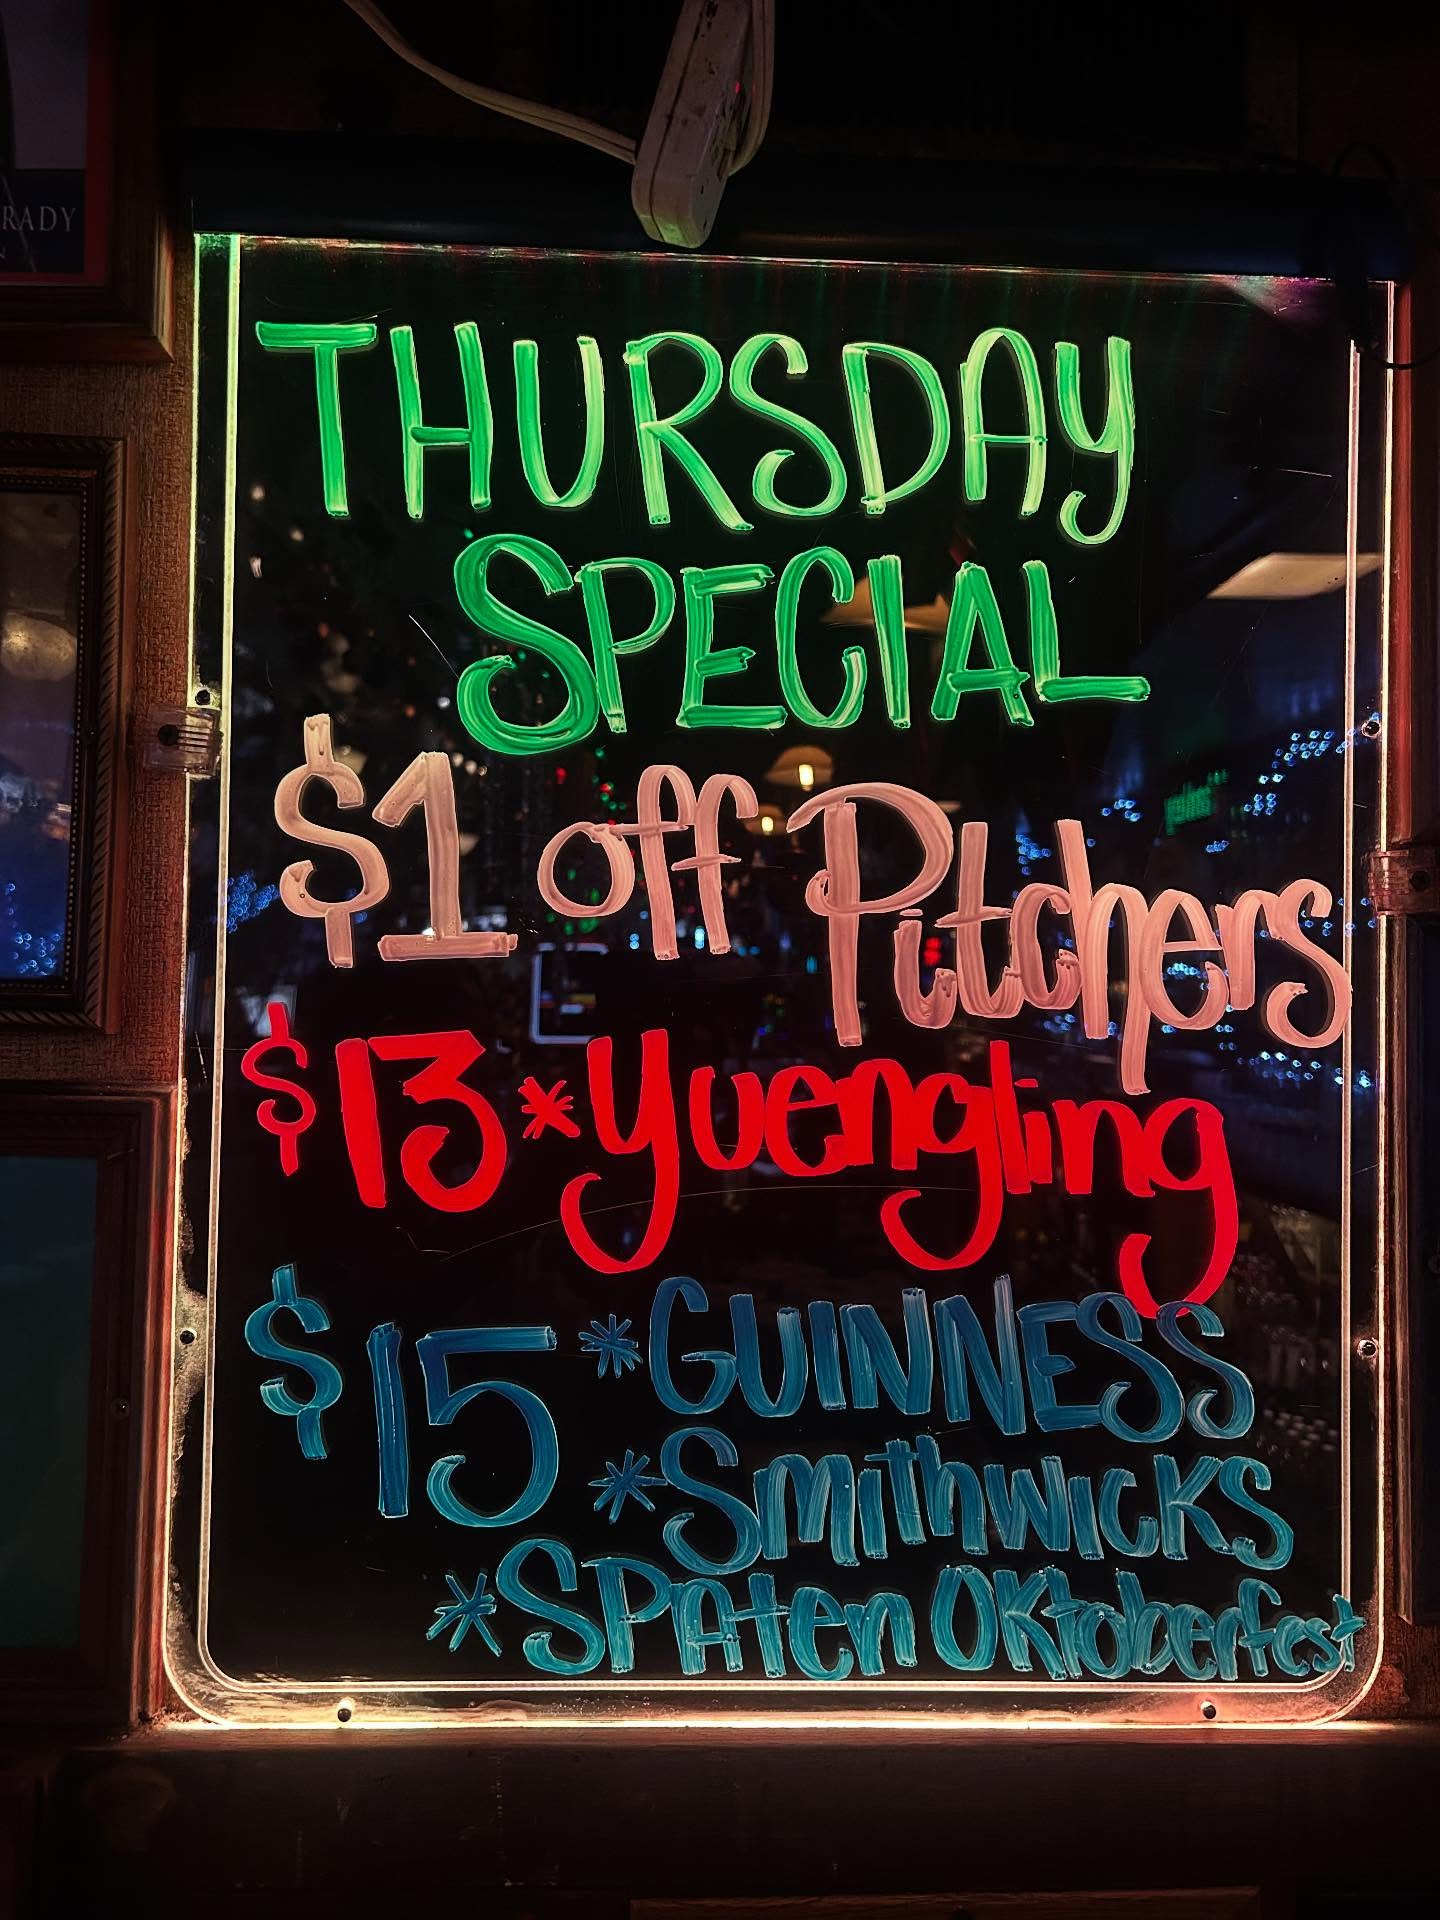 RADY
THURSDAY
SPECIAL
$1 off Pitchers
$13 *Yuengling
$15 *GUINNESS
*SmithwickS
*SPAten OKtoberfest